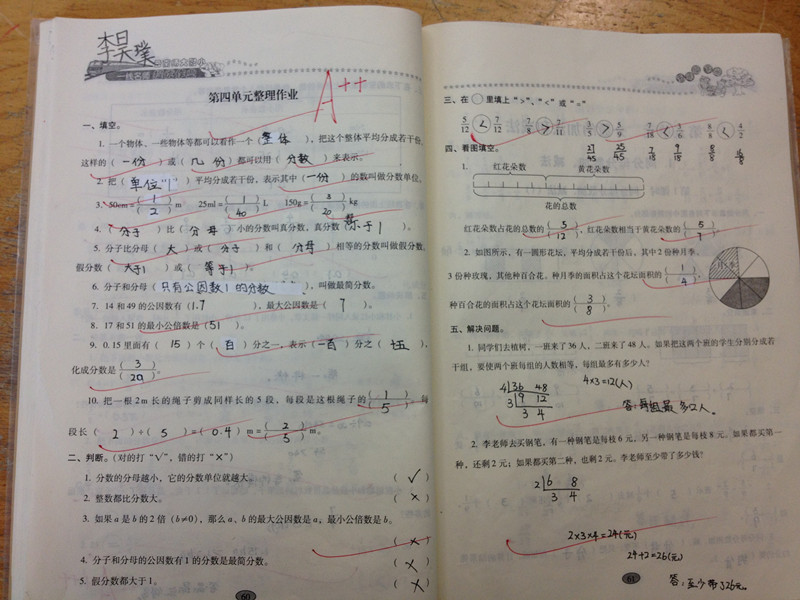 李昊璞
第四单元整理作业
A++
一、填空。
1. 一个物体、一些物体等都可以看作一个（整体），把这个整体平均分成若干份，
这样的（一份）或（几份）都可以用（分数）来表示。
2. 把（单位"1"）平均分成若干份，表示其中（一份）的数叫做分数单位。
3. 50cm=(1/2) m 25ml=(1/40) L 150g=(3/20) kg
4. （分子）比（分母）小的分数叫真分数，真分数（小于1）。
5. 分子比分母（大）或（分子）和（分母）相等的分数叫做假分数，
假分数（大于1）或（等于1）。
6. 分子和分母（只有公因数1的分数），叫做最简分数。
7. 14 和 49 的公因数有（1.7），最大公因数是（7）。
8. 17 和 51 的最小公倍数是（51）。
9. 0.15 里面有（15）个（百）分之一，表示（一百）分之（十五），
化成分数是（3/20）。
10. 把一根 2m 长的绳子剪成同样长的 5 段，每段是这根绳子的（1/5），每
段长（2）÷（5）=（0.4）m=（2/5）m。
二、判断。（对的打"√"，错的打"×"）
1. 分数的分母越小，它的分数单位就越大。 （√）
2. 整数都比分数大。 （×）
3. 如果 a 是 b 的 2 倍（b≠0），那么 a、b 的最大公因数是 a，最小公倍数是 b。
（×）
4. 分子和分母的公因数有 1 的分数是最简分数。 （×）
5. 假分数都大于 1。 （×）
60
三、在 ○ 里填上">"、"<"或"="
5/12 < 7/12 7/8 > 7/11 3/5 > 5/9 7/18 < 3/6 8/8 < 4/2
27/45 25/45 7/18 9/18 8/8
四、看图填空。
1. 红花朵数 黄花朵数
花的总数
红花朵数占花的总数的（5/12），红花朵数相当于黄花朵数的（5/7）。
2. 如图所示，有一圆形花坛，平均分成若干份后，其中 2 份种月季，
3 份种玫瑰，其他种百合花。种月季的面积占这个花坛面积的（1/4），
种百合花的面积占这个花坛面积的（3/8）。
五、解决问题。
1. 同学们去植树，一班来了 36 人，二班来了 48 人。如果把这两个班的学生分别分成若
干组，要使两个班每组的人数相等，每组最多有多少人？
4 36 48
3 9 12
3 4
4×3=12(人)
答：每组最多12人。
2. 李老师去买钢笔，有一种钢笔是每枝 6 元，另一种钢笔是每枝 8 元。如果都买第一
种，还剩 2 元；如果都买第二种，也剩 2 元。李老师至少带了多少钱？
2 6 8
3 4
2×3×4=24(元)
24+2=26(元)
答：至少带了26元。
61